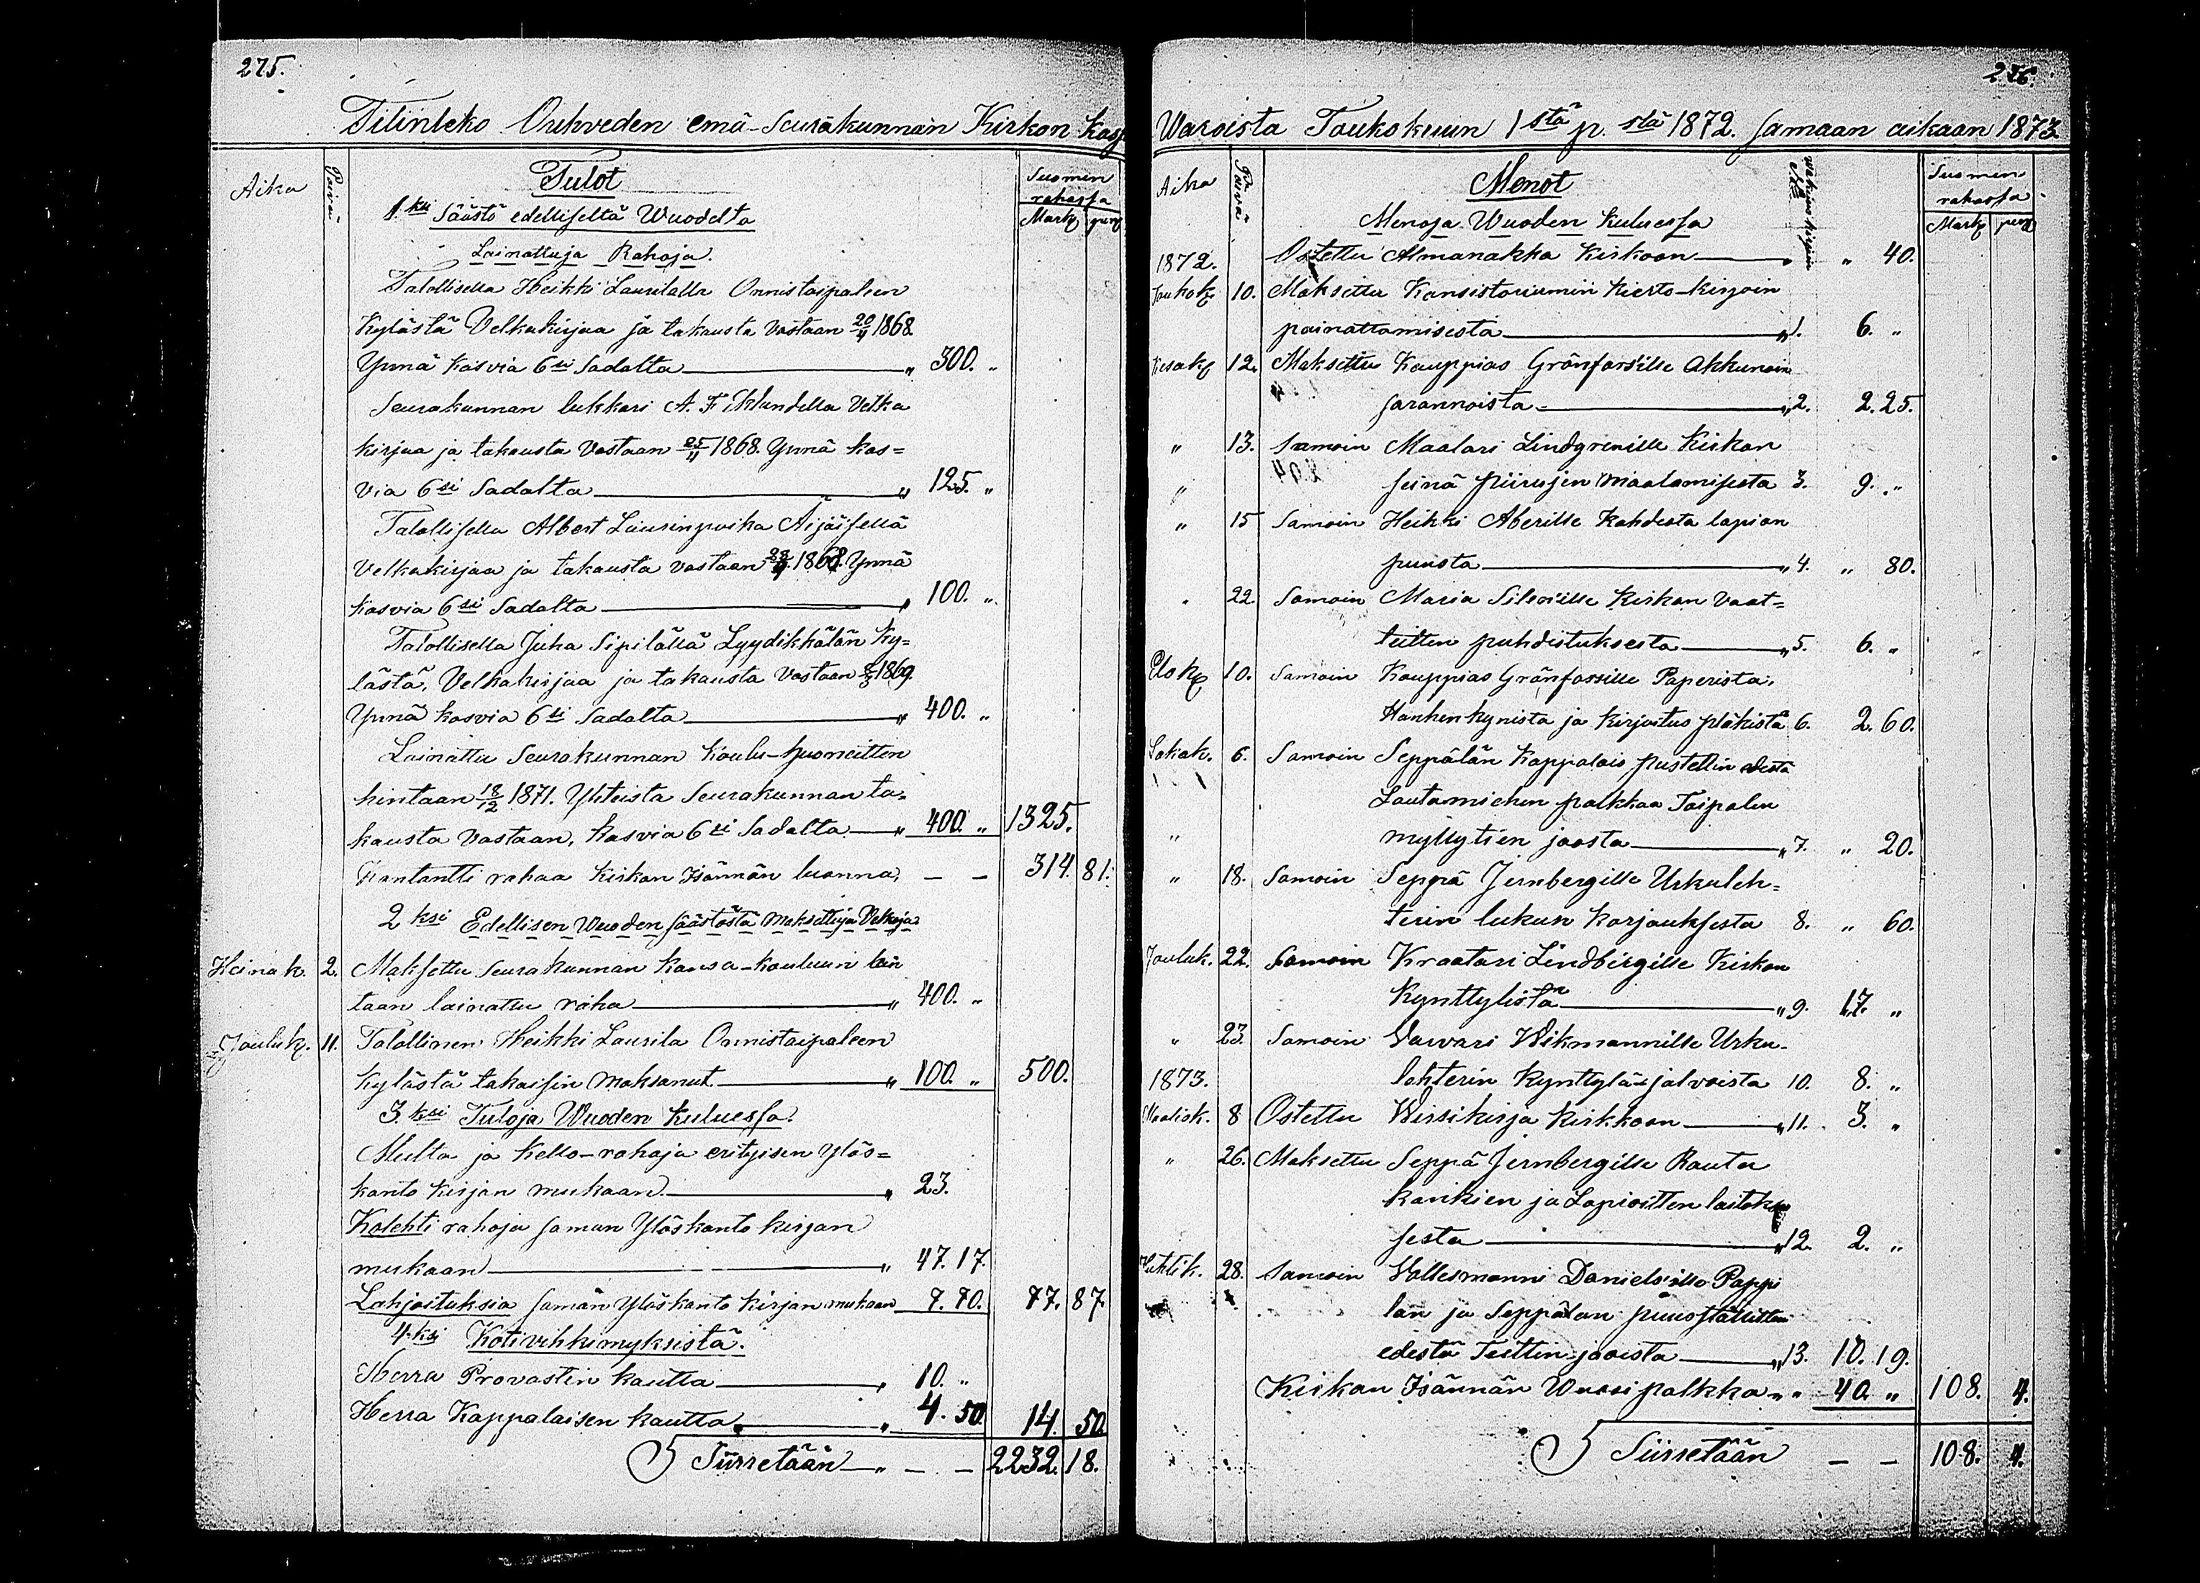 275.
Tilinteko Oriheden emä-Seurakunnan Kirkon Kass
Aika
Päivä
Tulot
Suomen rahassa
Mark penn
1.ksi Säästö edelliseltä Wuodelta
Lainattuja Rahoja.
Talollisella Heikki Laurilalla Onnistaipaleen
Kylästä Velkakirjaa ja takausta vastaan 20/4 1868
Ynnä kasvia 6si Sadalta „ 300. „
Seurakunnan lukkari A. F. Eklundella Velka
kirjaa ja takausta vastaan 25/4 1868. Ynnä kas=
via 6si Sadalta „ 125. „
Talollisella Albert Laurinpoika Äijäisellä
Velkakirjaa ja takausta vastaan 1868. Ynnä
kasvia 6si Sadalta „ 100. „
Talollisella Juha Sipilällä Lyydikkälän Ky=
lästä, Velkakirjaa ja takausta vastaan 1869.
Ynnä kasvia 6si Sadalta „ 400. „
Lainattu Seurakunnan Koulu-huoneitten
hintaan 18/12 1871. Yhteista Seurakunnan ta=
kausta vastaan, kasvia 6si Sadalta „ 400. „ 1325.
Kontantti rahaa kirkon Isännän luonna, — — 314. 81.
2 ksi Edellisen Wuoden säästöstä Maksettuja Velkoja
Heinäk. 2. Maksettu Seurakunnan kansa-kouluun lain
taan lainattu raha „ 400. „
Jouluk. 11. Talollinen Heikki Laurila Onnistaipaleen
Kylästä takaisin Maksanut „ 100. „ 500.
3.ksi Tuloja Wuoden kuluessa.
Multa ja kello-rahoja erityisen Ylös=
kanto kirjan mukaan „ 23.
Kolehti rahoja saman Ylöskanto kirjan
mukaan „ 47. 17.
Lahjoituksia saman Ylöskanto kirjan mukaan 7. 70. 77. 87.
4.ksi Kotivihkimyksistä.
Herra Provastin kautta „ 10. „
Herra Kappalaisen kautta „ 4. 50. 14. 50.
Siirretään „ — — 2232. 18.
276.
Waroista Toukokuun 1stä p. stä 1872. samaan aikaan 1873.
Aika
Päivä
Menot
Suomen rahassa
Mark pen
Menoja Wuoden kuluessa
1872. Ostettu Almanakka kirkoon „ „ 40.
Toukok. 10. Maksettu Konsistoriumin kierto-kirjoin
painattamisesta „ 1. 6. „
Kesäk 12. Maksettu Kauppias Grönforsille Akkunain
sarannoista „ 2. 2. 25.
„ 13. Samoin Maalari Lindgrenille Kirkon
„ seinä piirujen maalamisesta 3. 9. „
„ 15 Samoin Heikki Aberille Kahdesta lapion
puusta „ 4. „ 80.
„ 22. Samoin Maria kirkon vaat=
teitten puhdistuksesta „ 5. 6. „
Elok 10. Samoin Kauppias Grönforsille Paperista,
Hanhenkynista ja kirjoitus pläkistä 6. 2. 60.
Lokak. 6. Samoin Seppälän Kappalais pustellin edestä
Lautamiehen palkkaa Taipalen
„ myllytien jaosta „ 7. „ 20.
„ 18. Samoin Seppä Jernbergille Urkuleh=
terin lukun korjauksesta 8. „ 60.
Jouluk. 22. Samoin Kraatari Lindbergille Kirkon
Kynttylistä „ 9. 17. „
„ 23. Samoin Vaivari Wikmannille Urku-
1873. lehterin kynttylä-jalvoista 10. 8. „
Maalisk. 8 Ostettu Wirsikirja kirkkoon „ 11. 3. „
„ 26. Maksettu Seppä Jernbergille Rauta
kankien ja Lapioitten laitok
sesta „ 12. 2. „
Huhtik. 28. Samoin Vallesmanni Danielsille Pappi
lan ja Seppälan puuställitten
edestä Teitten jaoista „ 13. 10. 19.
Kirkon Isännän Wuosipalkka „ „ 40. „ 108. 4.
Siirretään — — 108. 4.